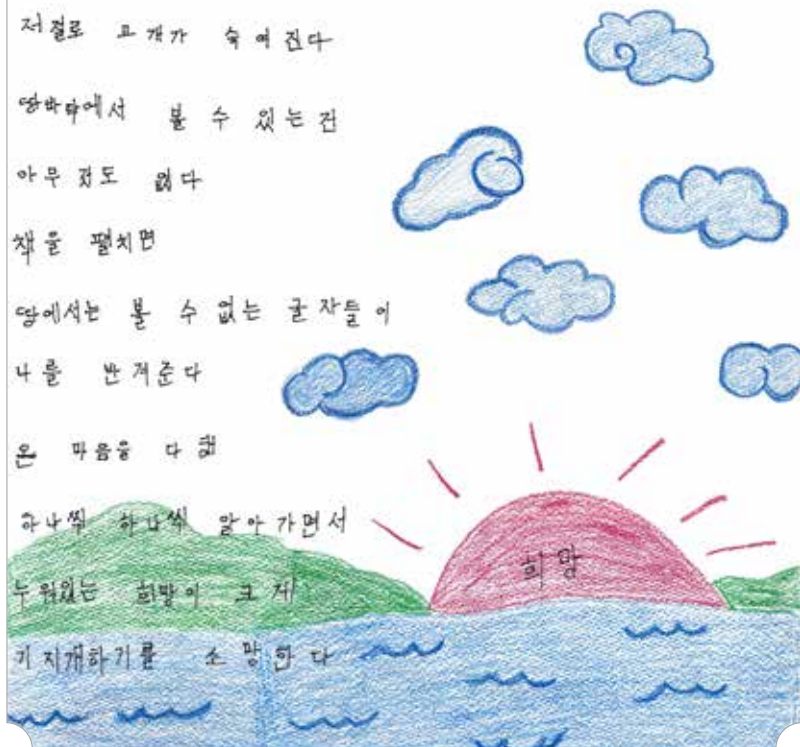 저절로 고개가 숙여진다
땅바닥에서 볼 수 있는건
아무것도 없다
책을 펼치면
땅에서는 볼 수 없는 글자들이
나를 반겨준다
온 마음을 다해
하나씩 하나씩 알아가면서
누워있는 희망이 크게
기지개하기를 소망한다
희망